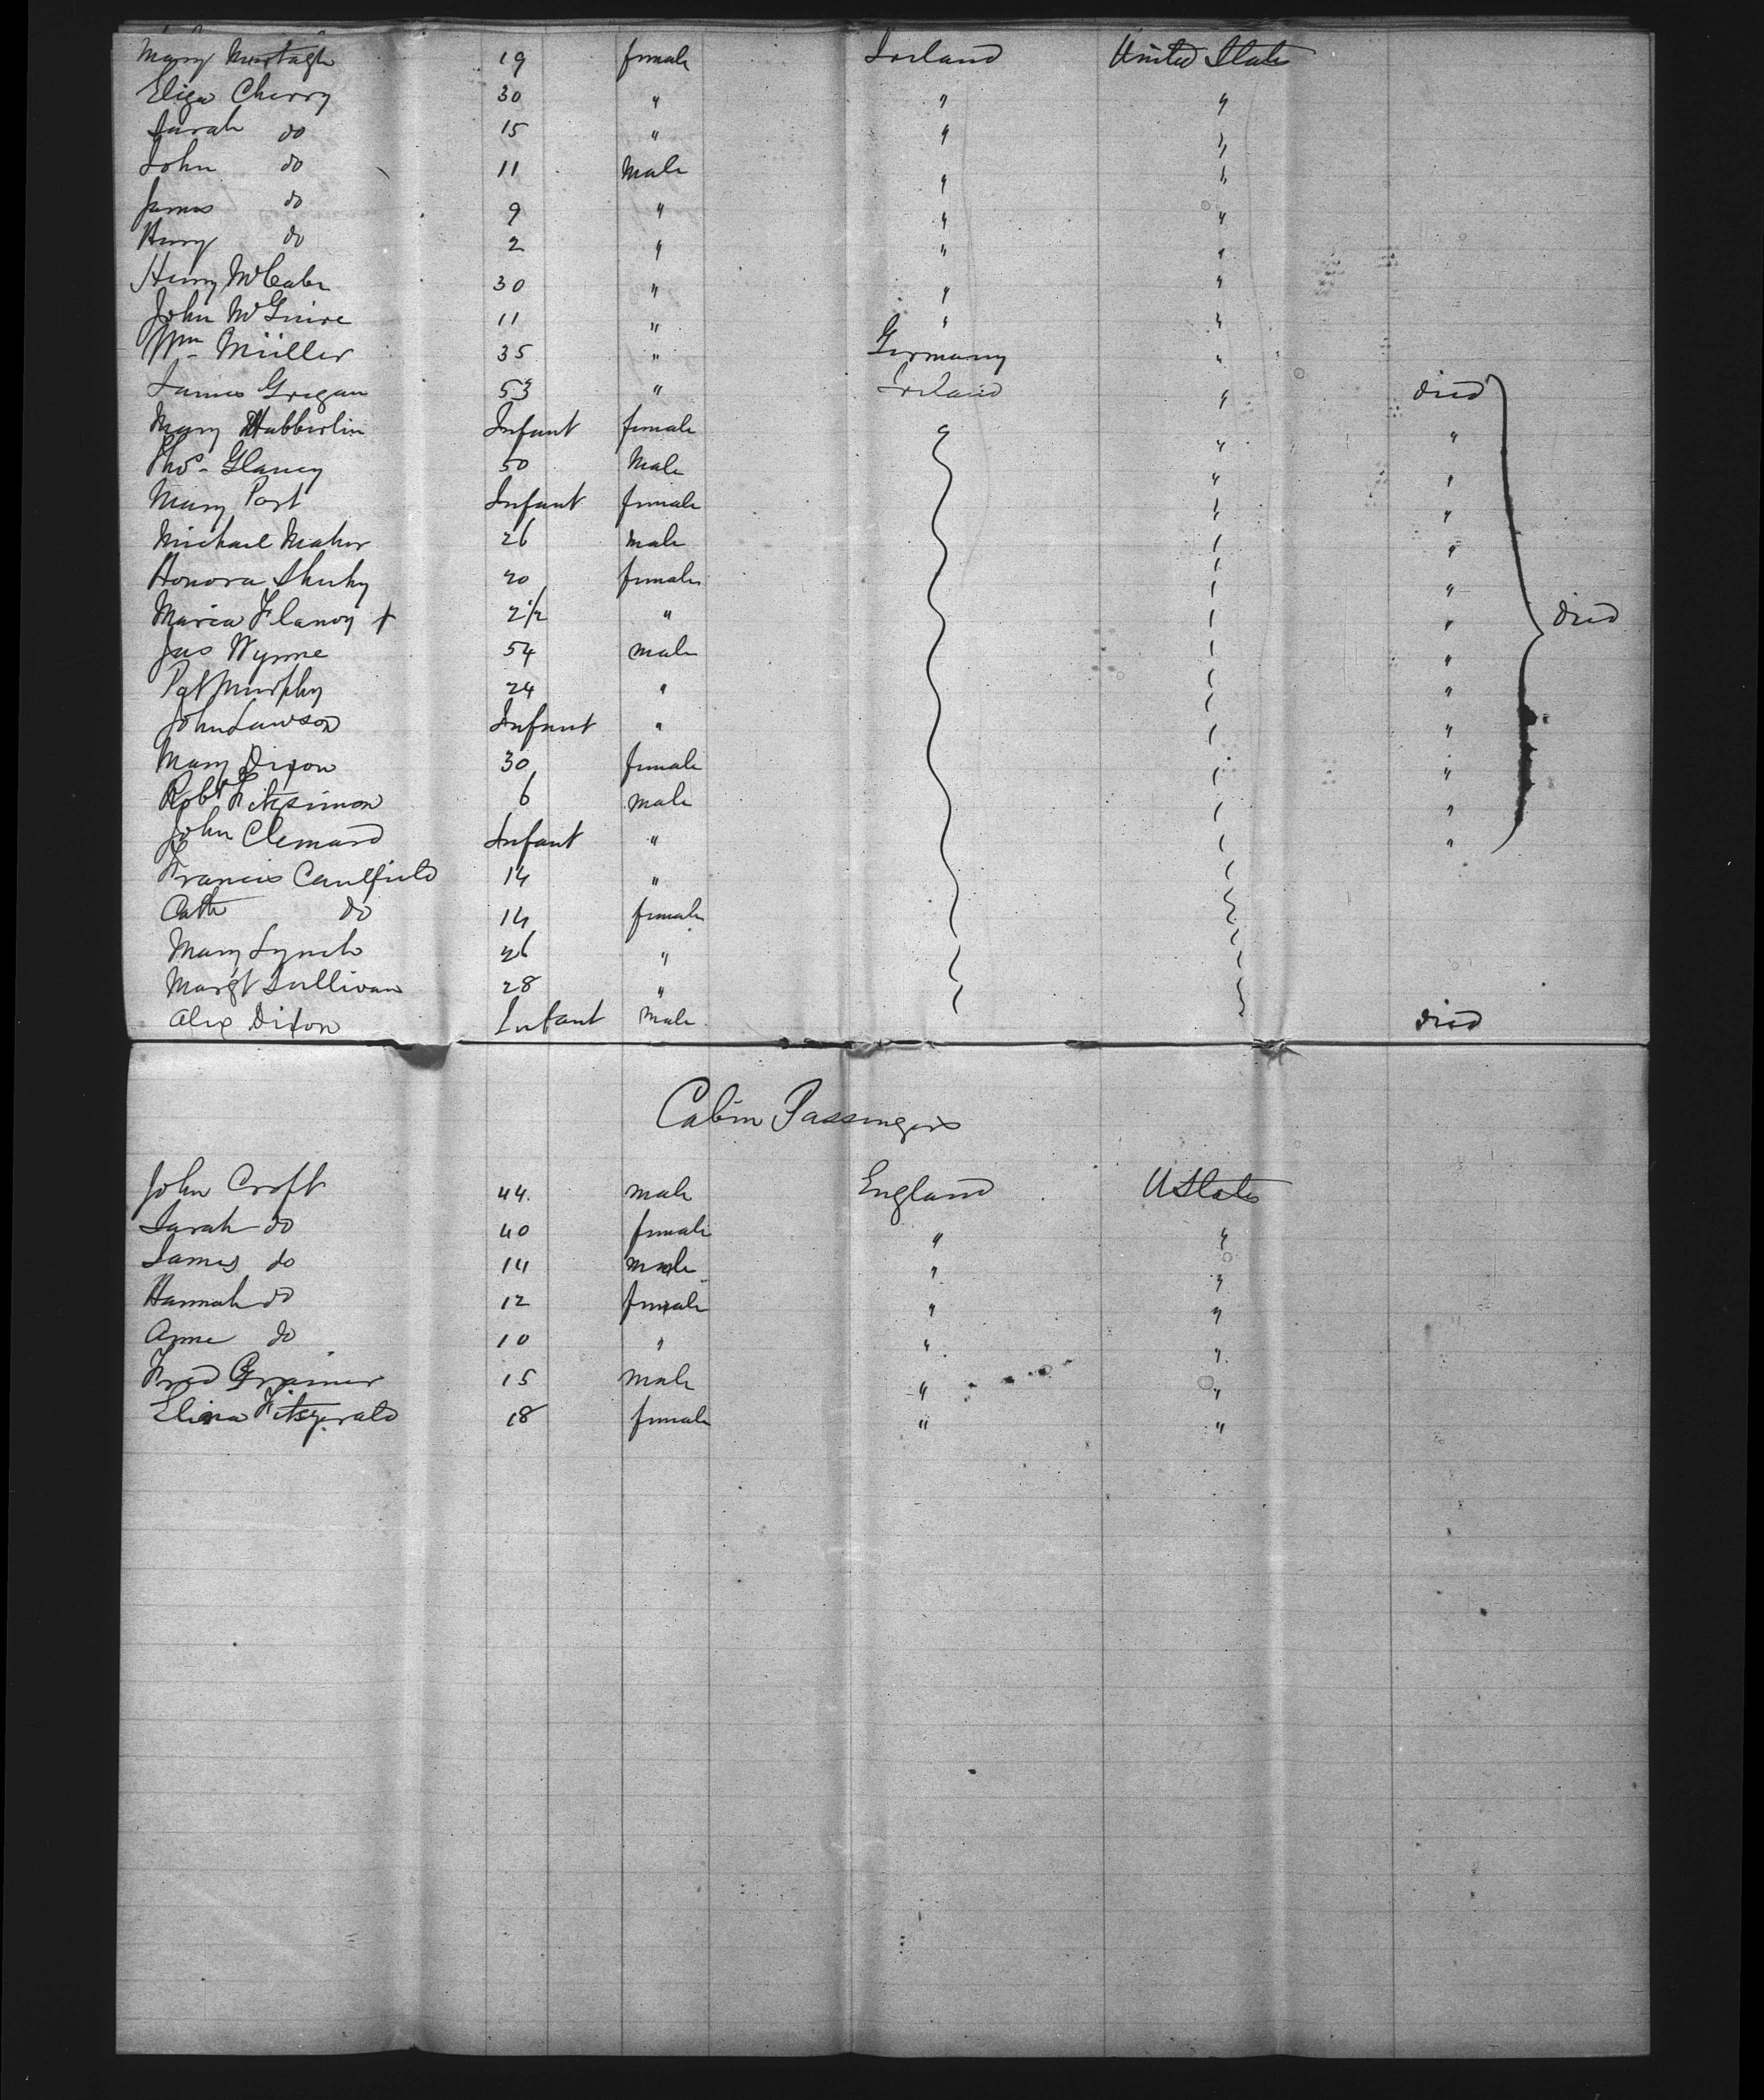 Mary Murtagh 19 female Ireland United States
Eliza Cherry 30 " " "
Sarah do 15 " " "
John do 11 Male " "
James do 9 " " "
Henry do 2 " " "
Henry McCabe 30 " " "
John McGuire 11 " " "
Wm Müller 35 " Germany "
James Grogan 53 " Ireland " died
Mary Habberlin Infant female " " "
Thos Glancy 50 Male " "
Mary Post Infant female " "
Michael Maher 26 male "
Honora Sheehy 20 female "
Maria Flanoy + 2 1/2 " " died
Jas Wynne 54 male "
Pat Murphy 24 " "
John Lawson Infant " "
Mary Dixon 30 female "
Robt Fitzsimon 6 male "
John Clemard Infant " "
Francis Caulfield 14 "
Cath do 14 female
Mary Lynch 26 "
Margt Sullivan 28 "
Alex Dixon Infant Male died
Cabin Passengers
John Croft 44 male England U States
Sarah do 40 female " "
James do 14 male " "
Hannah do 12 female " "
Anne do 10 " " "
Fred Grainer 15 Male " "
Fitzgerald 18 female " "